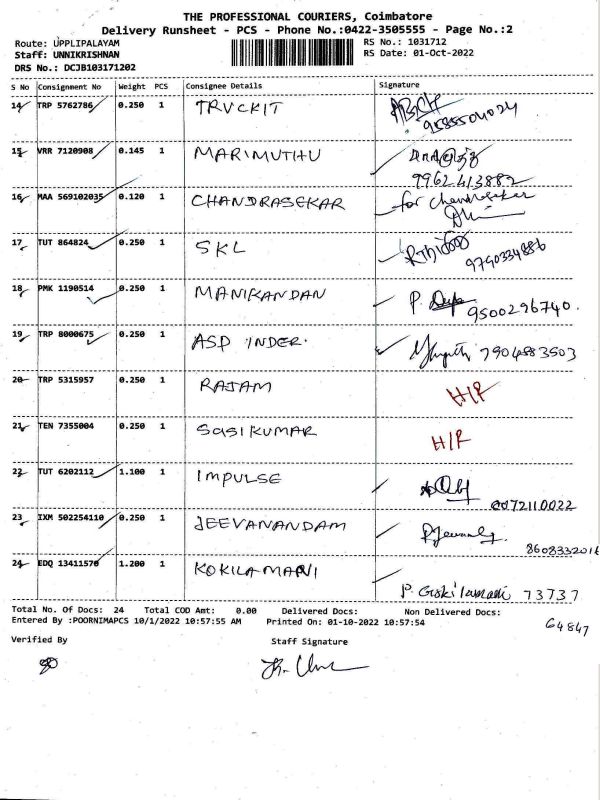 THE PROFESSIONAL COURIERS, Coimbatore
Delivery Runsheet - PCS - Phone No.:0422-3505555 - Page No.:2
Route: UPPLIPALAYAM RS No.: 1031712
Staff: UNNIKRISHNAN RS Date: 01-Oct-2022
DRS No.: DCJB103171202
S No Consignment No Weight PCS Consignee Details Signature
14 TRP 5762786 0.250 1 TRUCKIT
15 VRR 7120908 0.145 1 MARIMUTHU
9962413882
16 MAA 569102035 0.120 1 CHANDRASEKAR for Chandrasekar
17 TUT 864824 0.250 1 SKL 9790334886
18 PMK 1190514 0.250 1 MANIKANDAN P 9500296740.
19 TRP 8000675 0.250 1 ASP INDER. 7904883503
20 TRP 5315957 0.250 1 RAJAM H/R
21 TEN 7355004 0.250 1 SASIKUMAR H/R
22 TUT 6202112 1.100 1 IMPULSE
23 IXM 502254110 0.250 1 JEEVANANDAM
24 EDQ 13411570 1.200 1 KOKILAMANI
73737
64847
Total No. Of Docs: 24 Total COD Amt: 0.00 Delivered Docs: Non Delivered Docs:
Entered By :POORNIMAPCS 10/1/2022 10:57:55 AM Printed On: 01-10-2022 10:57:54
Verified By Staff Signature